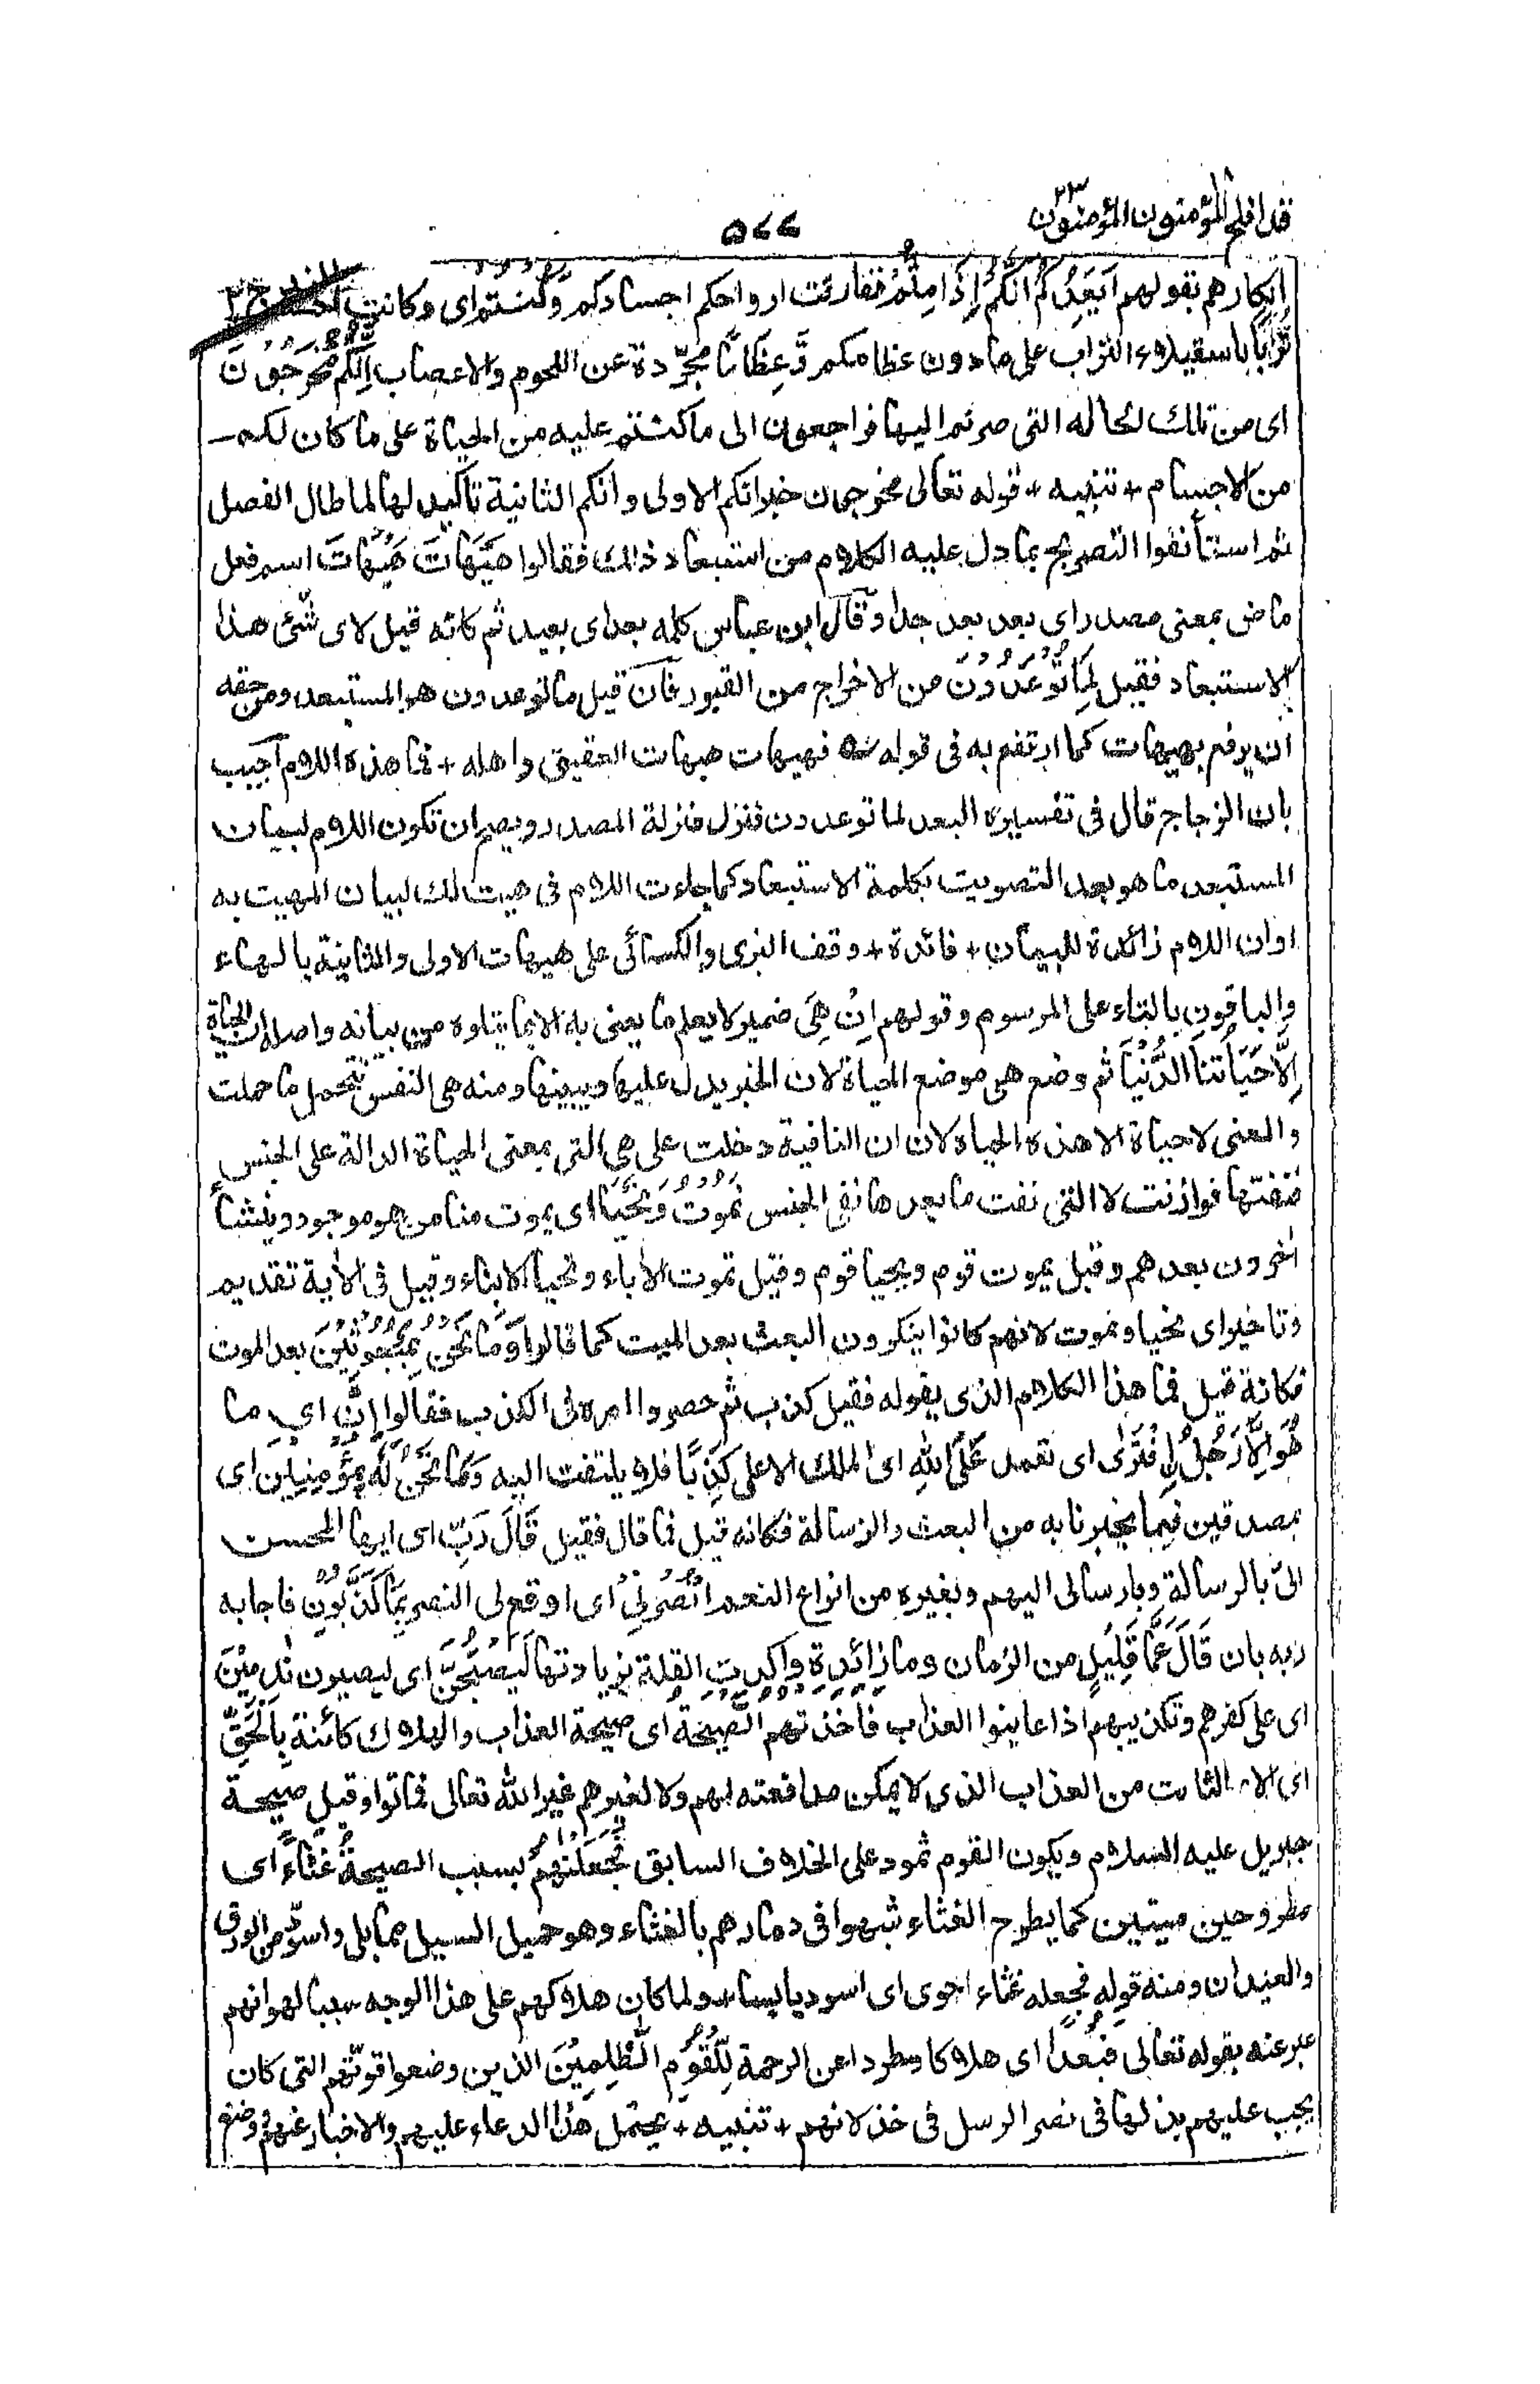 قد افلح المؤمنون المؤمنون ٢٣
٥٧٧
انكارهم بقولهم اَيَعِدُكُمْ اَنَّكُمْ اِذَا مِتُّمْ ففارقت ارواحكم اجسادكم وَكُنْتُمْ اى وكانت
تُرَابًا باستيلاء التراب على ما دون عظامكم وَّعِظَامًا مجرّدة عن اللحوم والاعصاب اَنَّكُمْ مُّخْرَجُوْنَ
اى من تلك الحالة التى صرتم اليها فراجعون الى ما كنتم عليه من الحياة على ما كان لكم
من الاجسام + تنبيه + قوله تعالى مخرجون خبر انكم الاولى وانكم الثانية تاكيد لها لما طال الفصل
ثم استأنفوا التصريح بما دل عليه الكلام من استبعاد ذالك فقالوا هَيْهَاتَ هَيْهَاتَ اسم فعل
ماض بمعنى مصدر اى بعد بعد جدا وقال ابن عباس كلمه بعد اى بعيد ثم كانه قيل لاى شئ هذا
الاستبعاد فقيل لِمَا تُوْعَدُوْنَ من الاخراج من القبور فان قيل ما توعدون هو المستبعد ومن حقه
ان يرفع بهيهات كما ارتفع به فى قوله فهيهات هيهات العقيق واهله + فما هذه اللام اجيب
بان الزجاج قال فى تفسيره البعد لما توعدون فنزل منزلة المصدر ويصح ان تكون اللام لبيان
المستبعد ما هو بعد التصويت بكلمة الاستبعاد كما جاءت اللام فى هيت لك لبيان المهيت به
اوان اللام زائدة للبيان + فائدة + وقف البزى والكسائى على هيهات الاولى والثانية بالهاء
والباقون بالتاء على المرسوم وقولهم اِنْ هِىَ ضمير لا يعلم ما يعنى به الا بما يتلوه من بيانه واصله ان الحياة
اِلَّا حَيَاتُنَا الدُّنْيَا ثم وضع هى موضع الحياة لان الخبر يدل عليها ويبينها ومنه هى النفس تتحمل ما حملت
والمعنى لا حياة الا هذه الحياه لان ان النافية دخلت على هى التى بمعنى الحياة الدالة على الجنس
فنفتها فوازنت لا التى نفت ما بعدها نفى الجنس نَمُوْتُ وَنَحْيَا اى يموت منا من هو موجود وينشأ
اخرون بعدهم وقيل يموت قوم ويحيا قوم وقيل تموت الأباء وتحيا الابناء وقيل فى الأية تقديم
وتاخير اى نحيا ونموت لانهم كانوا ينكرون البعث بعد الميت كما قالوا وَمَا نَحْنُ بِمَبْعُوْثِيْنَ بعد الموت
فكانة قيل فما هذا الكلام الذى يقوله فقيل كذب ثم حصروا امره فى الكذب فقالوا اِنْ اى ما
هُوَ اِلَّا رَجُلُ اِفْتَرٰى اى تعمد عَلَى اللهِ اى الملك الاعلى كَذِبًا فلا يلتفت اليه وَمَا نَحْنُ لَهٗ بِمُؤْمِنِيْنَ اى
بمصدقين فيما يخبرنا به من البعث والرسالة فكانه قيل فما قال فقيل قَالَ رَبِّ اى ايها المحسن
الىّ بالرسالة وبارسالى اليهم وبغيره من انواع النعم انْصُرْنِىْ اى اوقع لى النصر بِمَا كَذَّبُوْنِ فاجابه
ربه بان قَالَ عَمَّا قَلِيْلٍ من الزمان وما زائدة واكدت القلة بزيادتها لَيُصْبِحُنَّ اى ليصيرن نٰدِمِيْنَ
اى على كفرهم وتكذيبهم اذا عاينوا العذاب فَاَخَذَتْهُمُ الصَّيْحَةُ اى صيحة العذاب والهلاك كائنة بِالْحَقِّ
اى الامر الثابت من العذاب الذى لا يمكن مدافعته لهم ولا لغيرهم غير الله تعالى فماتوا وقيل صيحة
جبريل عليه السلام ويكون القوم ثمود على الخلاف السابق فَجَعَلْنٰهُمْ بسبب الصيحة غُثَاءً اى
مطروحين ميتين كما يطرح الغثاء شبهوا فى دمارهم بالغثاء وهو حميل السيل مما بلى واسودّ من الورق
والعيدان ومنه قوله فجعله غثاء احوى اى اسود يابسا + ولما كان هلاكهم على هذا الوجه سببا لهوانهم
عبر عنه بقوله تعالى فَبُعْدًا اى هلاكا وطردا عن الرحمة لِّلْقَوْمِ الظّٰلِمِيْنَ الذين وضعوا قوّتهم التى كان
يجب عليهم بذلها فى نصر الرسل فى خذلانهم + تنبيه + يحتمل هذا الدعاء عليهم والاخبار عنهم ووضع